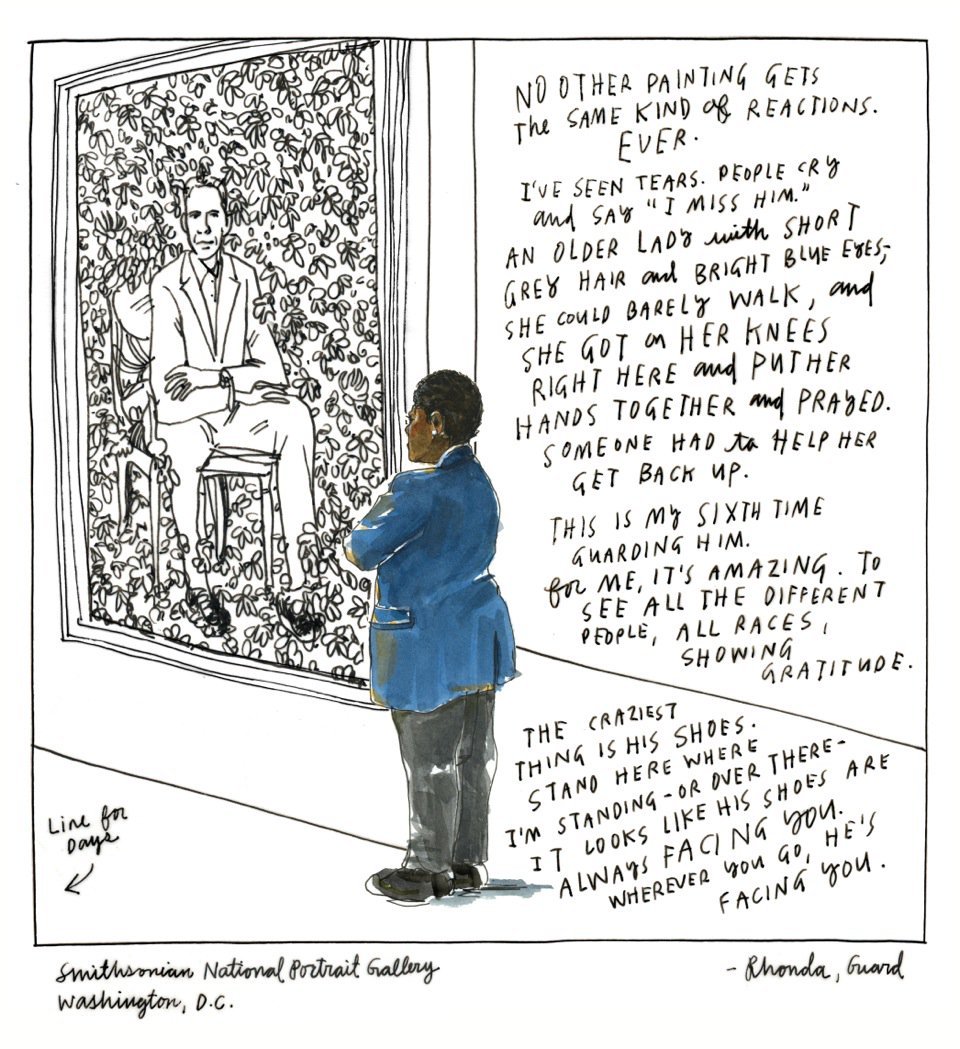 NO OTHER PAINTING GETS
the SAME KIND of REACTIONS.
EVER.
I'VE SEEN TEARS. PEOPLE CRY
and SAY "I MISS HIM."
AN OLDER LADY with SHORT
GREY HAIR and BRIGHT BLUE EYES,
SHE COULD BARELY WALK, and
SHE GOT on HER KNEES
RIGHT HERE and PUT HER
HANDS TOGETHER and PRAYED.
SOMEONE HAD to HELP HER
GET BACK UP.
THIS IS MY SIXTH TIME
GUARDING HIM.
for ME, IT'S AMAZING. TO
SEE ALL THE DIFFERENT
PEOPLE, ALL RACES,
SHOWING
GRATITUDE.
THE CRAZIEST
THING IS HIS SHOES.
STAND HERE WHERE
I'M STANDING - OR OVER THERE -
IT LOOKS LIKE HIS SHOES ARE
ALWAYS FACING YOU.
WHEREVER YOU GO, HE'S
FACING YOU.
Line for
Days
Smithsonian National Portrait Gallery
Washington, D.C.
- Rhonda, Guard